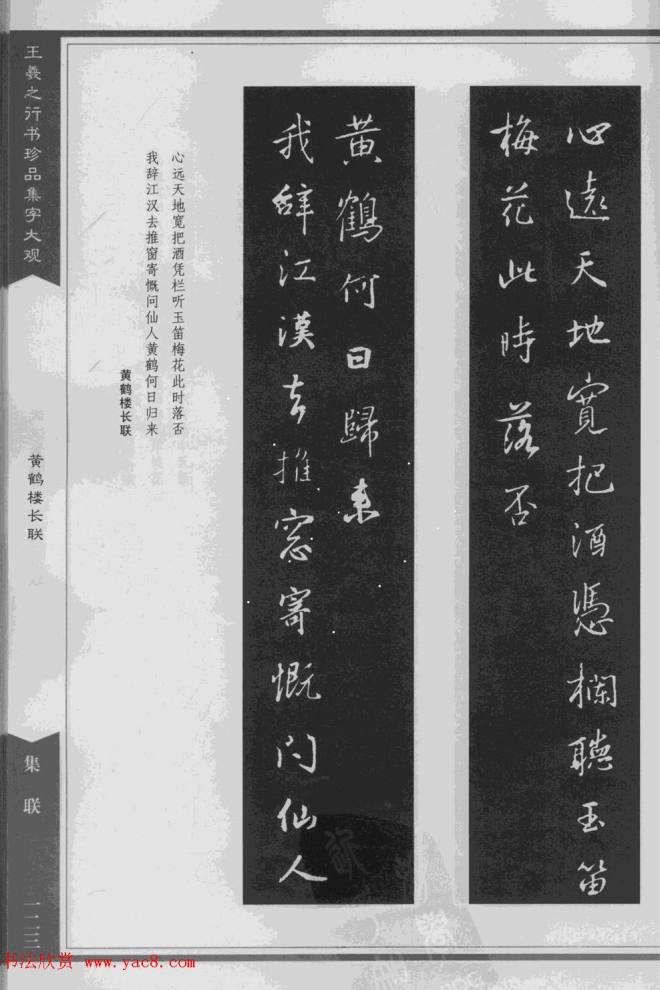 心遠天地寬把酒憑欄聽玉笛
梅花此時落否
我辭江漢去推窓寄慨問仙人
黄鶴何日歸来
心远天地宽把酒凭栏听玉笛梅花此时落否
我辞江汉去推窗寄慨问仙人黄鹤何日归来
黄鹤楼长联
王羲之行书珍品集字大观
黄鹤楼长联
集联
书法欣赏 www.yac8.com